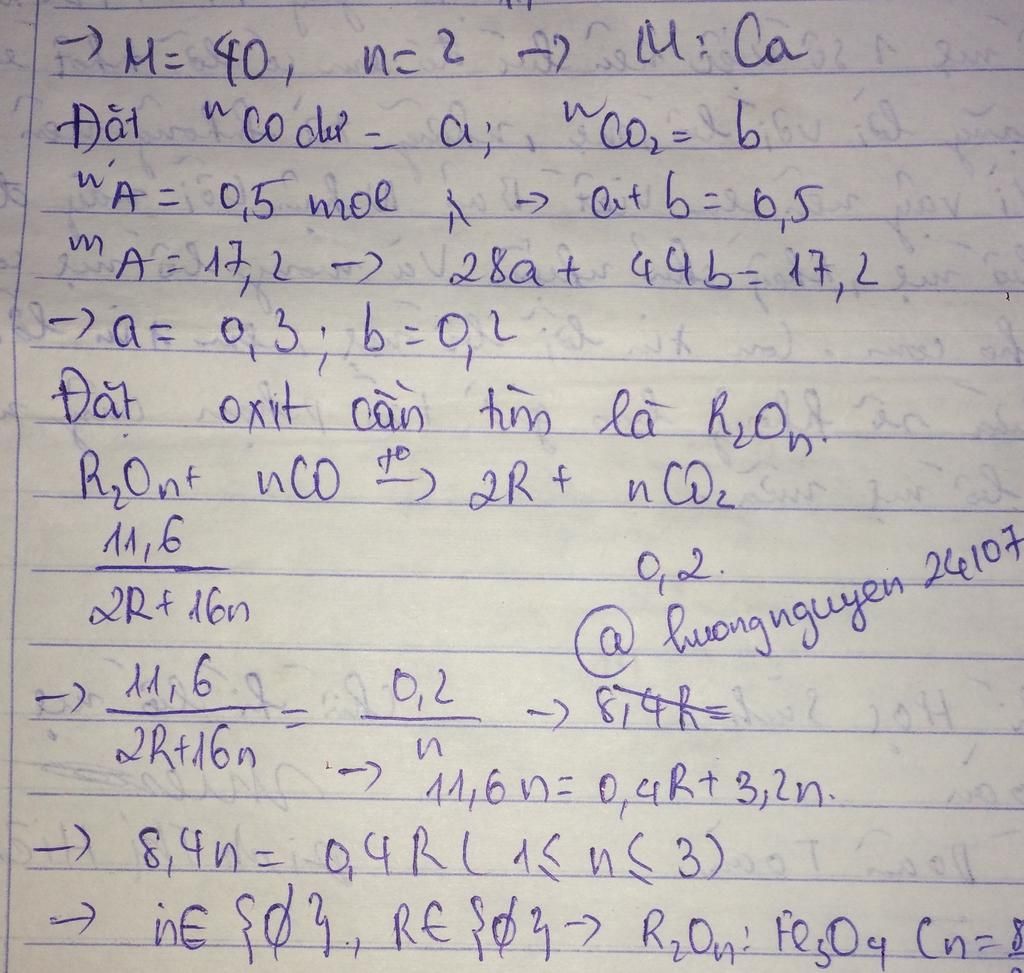 → M = 40, n = 2 → M: Ca
Đặt nCO dư = a; nCO₂ = b
nA = 0,5 mol → a + b = 0,5
mA = 17,2 → 28a + 44b = 17,2
→ a = 0,3; b = 0,2
Đặt oxit cần tìm là R₂Oₙ.
R₂Oₙ + nCO t° → 2R + nCO₂
11,6 / (2R + 16n) 0,2.
@ huongnguyen 24107
→ 11,6 / (2R + 16n) = 0,2 / n → 8,4R =
→ 11,6n = 0,4R + 3,2n.
→ 8,4n = 0,4R (1 ≤ n ≤ 3)
→ n ∈ {∅}, R ∈ {∅} → R₂Oₙ: Fe₃O₄ (n = 8